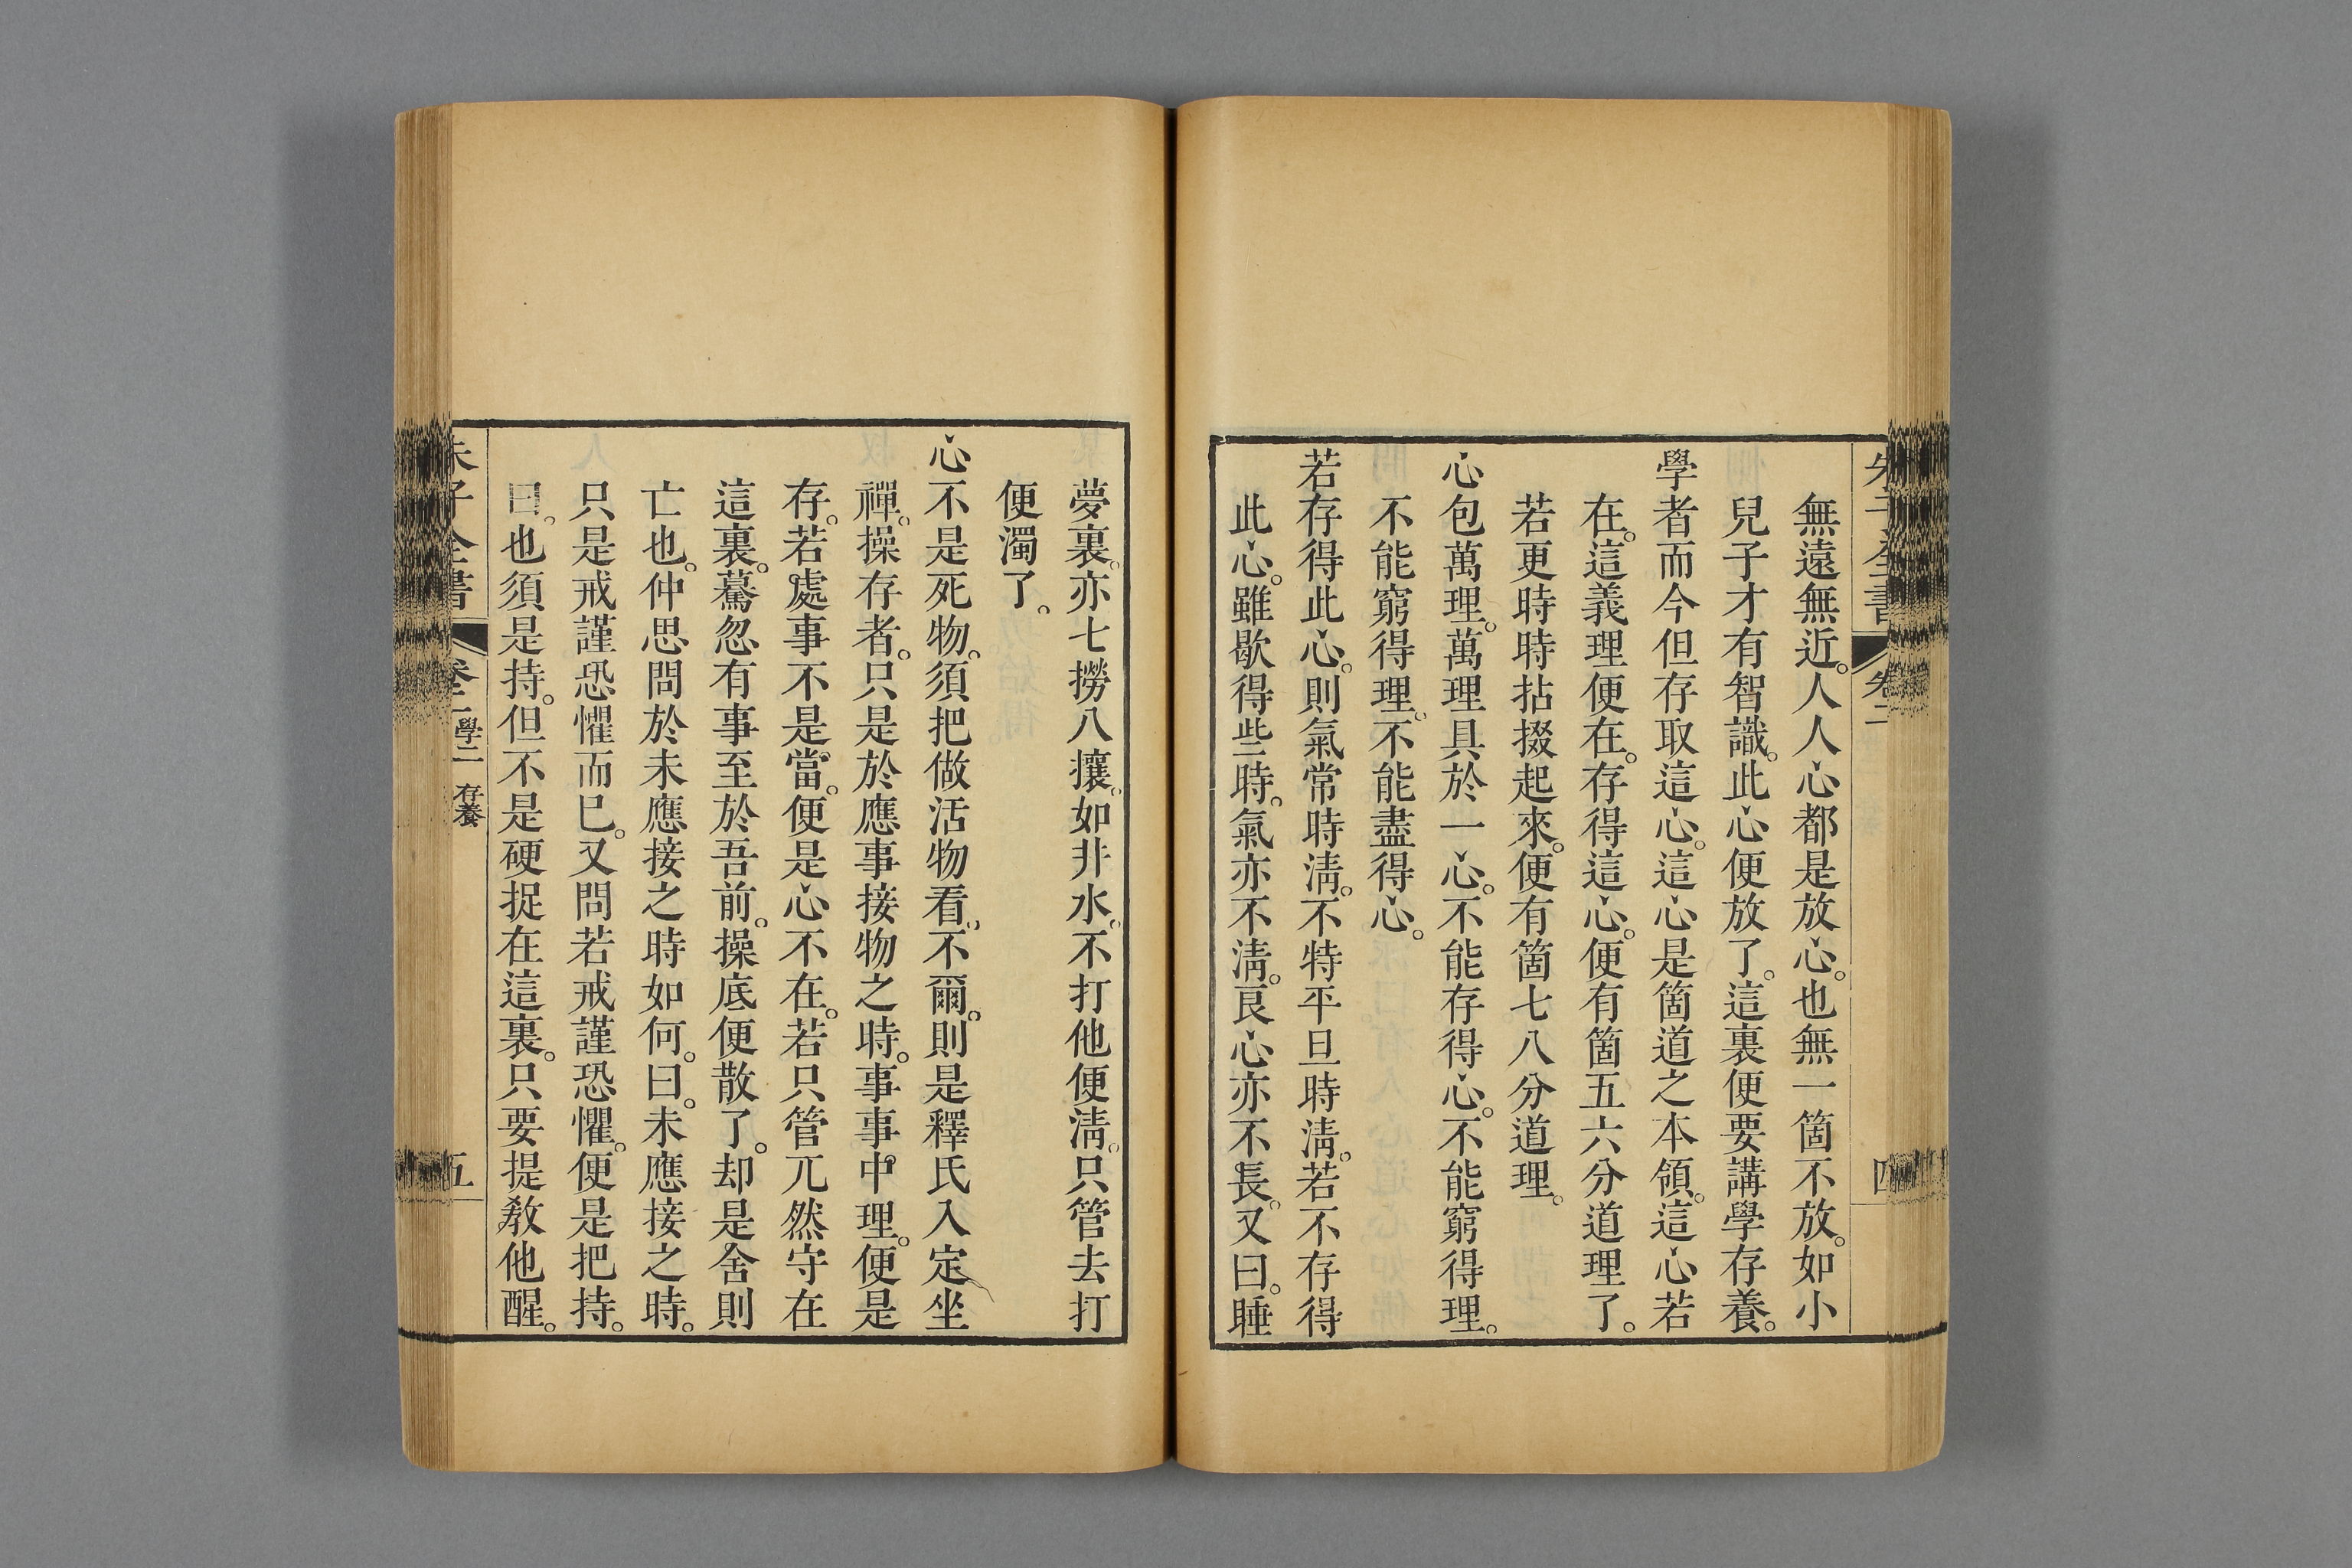 朱子全書 卷二 四
無遠無近。人人心都是放心。也無一箇不放。如小
兒子才有智識。此心便放了。這裏便要講學存養。
學者而今但存取這心。這心是箇道之本領。這心若
在。這義理便在。存得這心。便有箇五六分道理了。
若更時時拈掇起來。便有箇七八分道理。
心包萬理。萬理具於一心。不能存得心。不能窮得理。
不能窮得理。不能盡得心。
若存得此心。則氣常時淸。不特平旦時淸。若不存得
此心。雖歇得些時。氣亦不淸。良心亦不長。又曰。睡
夢裏。亦七撈八攘。如井水。不打他便淸。只管去打
便濁了。
心不是死物。須把做活物看。不爾。則是釋氏入定坐
禪。操存者。只是於應事接物之時。事事中理。便是
存。若處事不是當。便是心不在。若只管兀然守在
這裏。驀忽有事至於吾前。操底便散了。却是舍則
亡也。仲思問於未應接之時如何。曰。未應接之時。
只是戒謹恐懼而已。又問若戒謹恐懼。便是把持。
曰。也須是持。但不是硬捉在這裏。只要提教他醒。
朱子全書 卷二 學二 存養 五